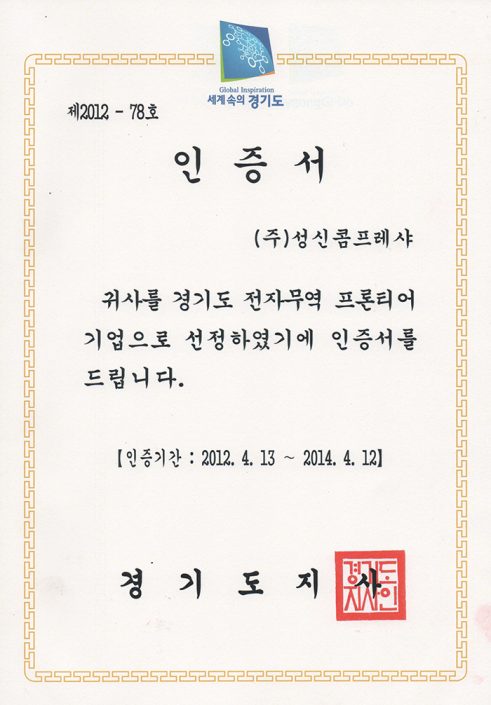 Global Inspiration
세계 속의 경기도
제2012 - 78호
인 증 서
(주)성신콤프레샤
귀사를 경기도 전자무역 프론티어
기업으로 선정하였기에 인증서를
드립니다.
【인증기간 : 2012. 4. 13 ~ 2014. 4. 12】
경 기 도 지 사
경기도
지사인